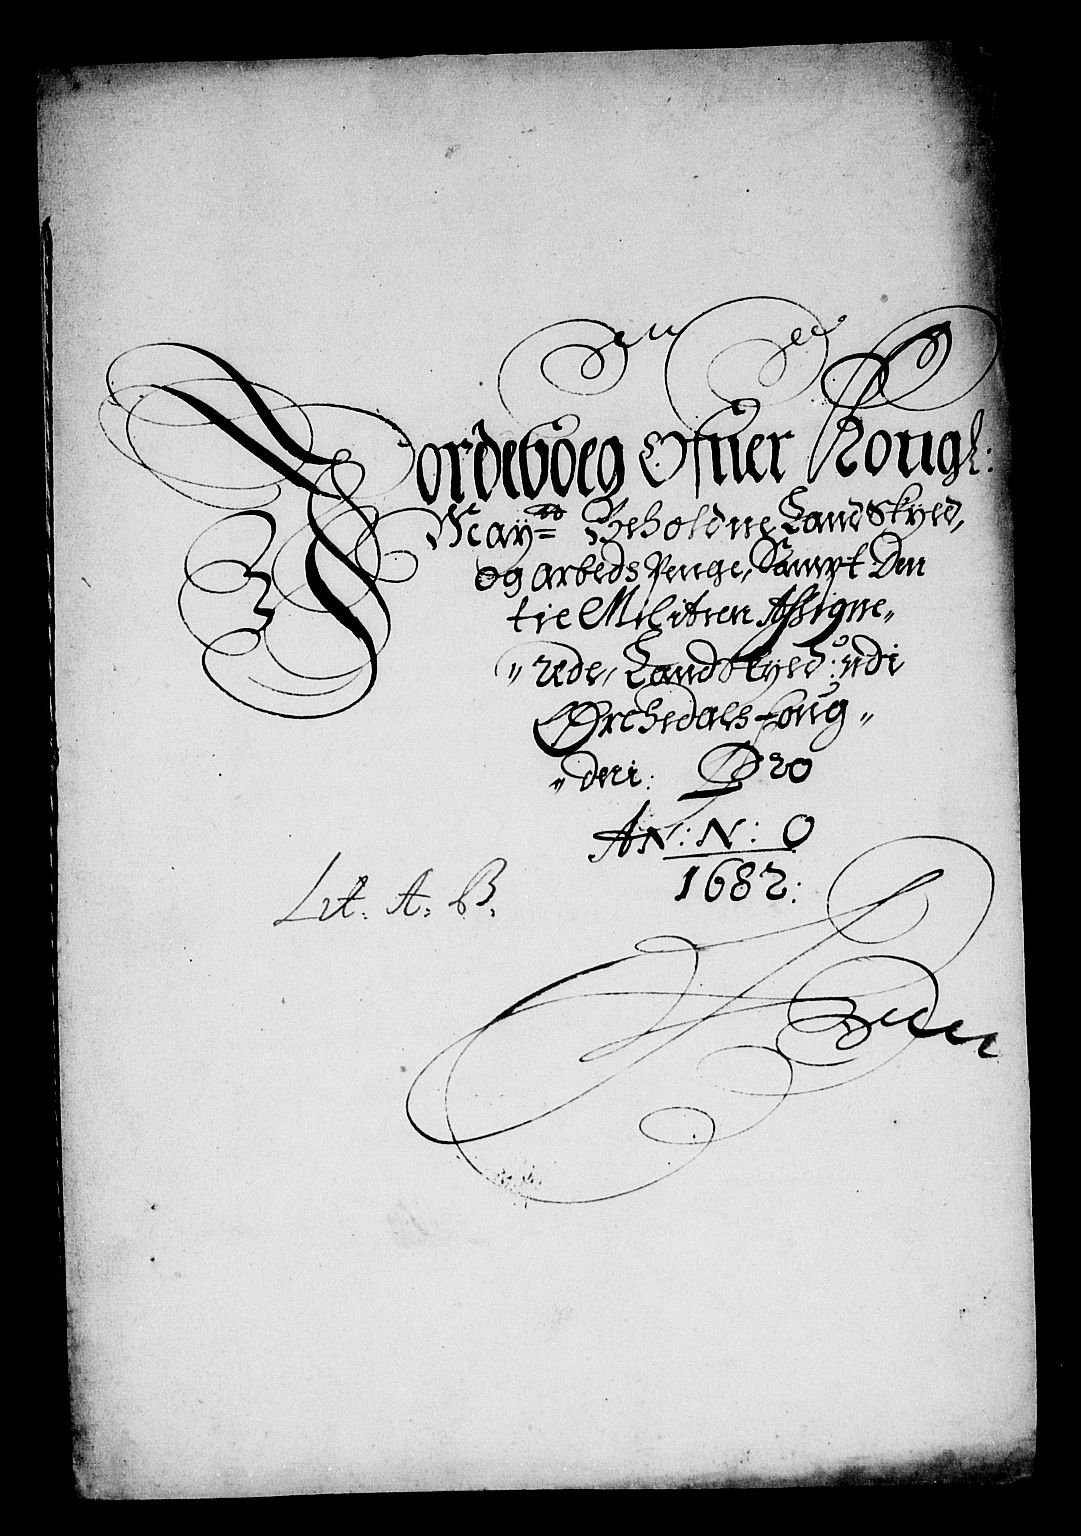 Jordeboeg Ofuer Kongl:
Maytt Beholdne Landskyld,
og arbeds Penge, Sampt Den
til Militien Assigne„
„rede, Landskyld: udi
Ørchedals foug„
„deri: Pro
AN:N:O
1682:
Lit. A. B.